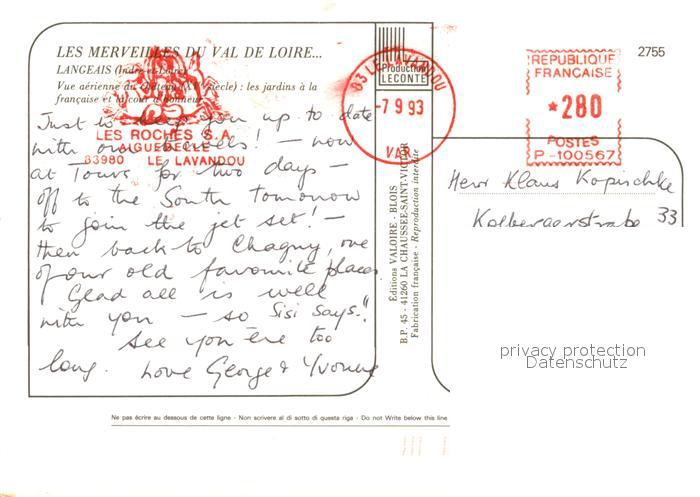 LES MERVEILLES DU VAL DE LOIRE...
LANGEAIS (Indre-et-Loire)
Vue aérienne du château (XVe siècle) : les jardins à la
française et la cour d'honneur
Just to keep you up to date
with our travels! - now
at Tours for two days -
off to the South tomorrow
to join the jet set! -
then back to Chagny, one
of our old favourite places.
Glad all is well
with you - so "Sisi says."
See you ere too
long. Love George & Yvonne
LES ROCHES S.A.
AIGUEBELLE
83980 LE LAVANDOU
Production
LECONTE
83 LE LAVANDOU
-7 9 93
VAR
REPUBLIQUE
FRANCAISE
*280
POSTES
P-100567
2755
Herr Klaus Kopischke
Kolbergerstraße 33
Éditions VALOIRE - BLOIS
B.P. 45 - 41260 LA CHAUSSEE-SAINT-VICTOR
Fabrication française - Reproduction interdite
privacy protection
Datenschutz
Ne pas écrire au dessous de cette ligne - Non scrivere al di sotto di questa riga - Do not Write below this line